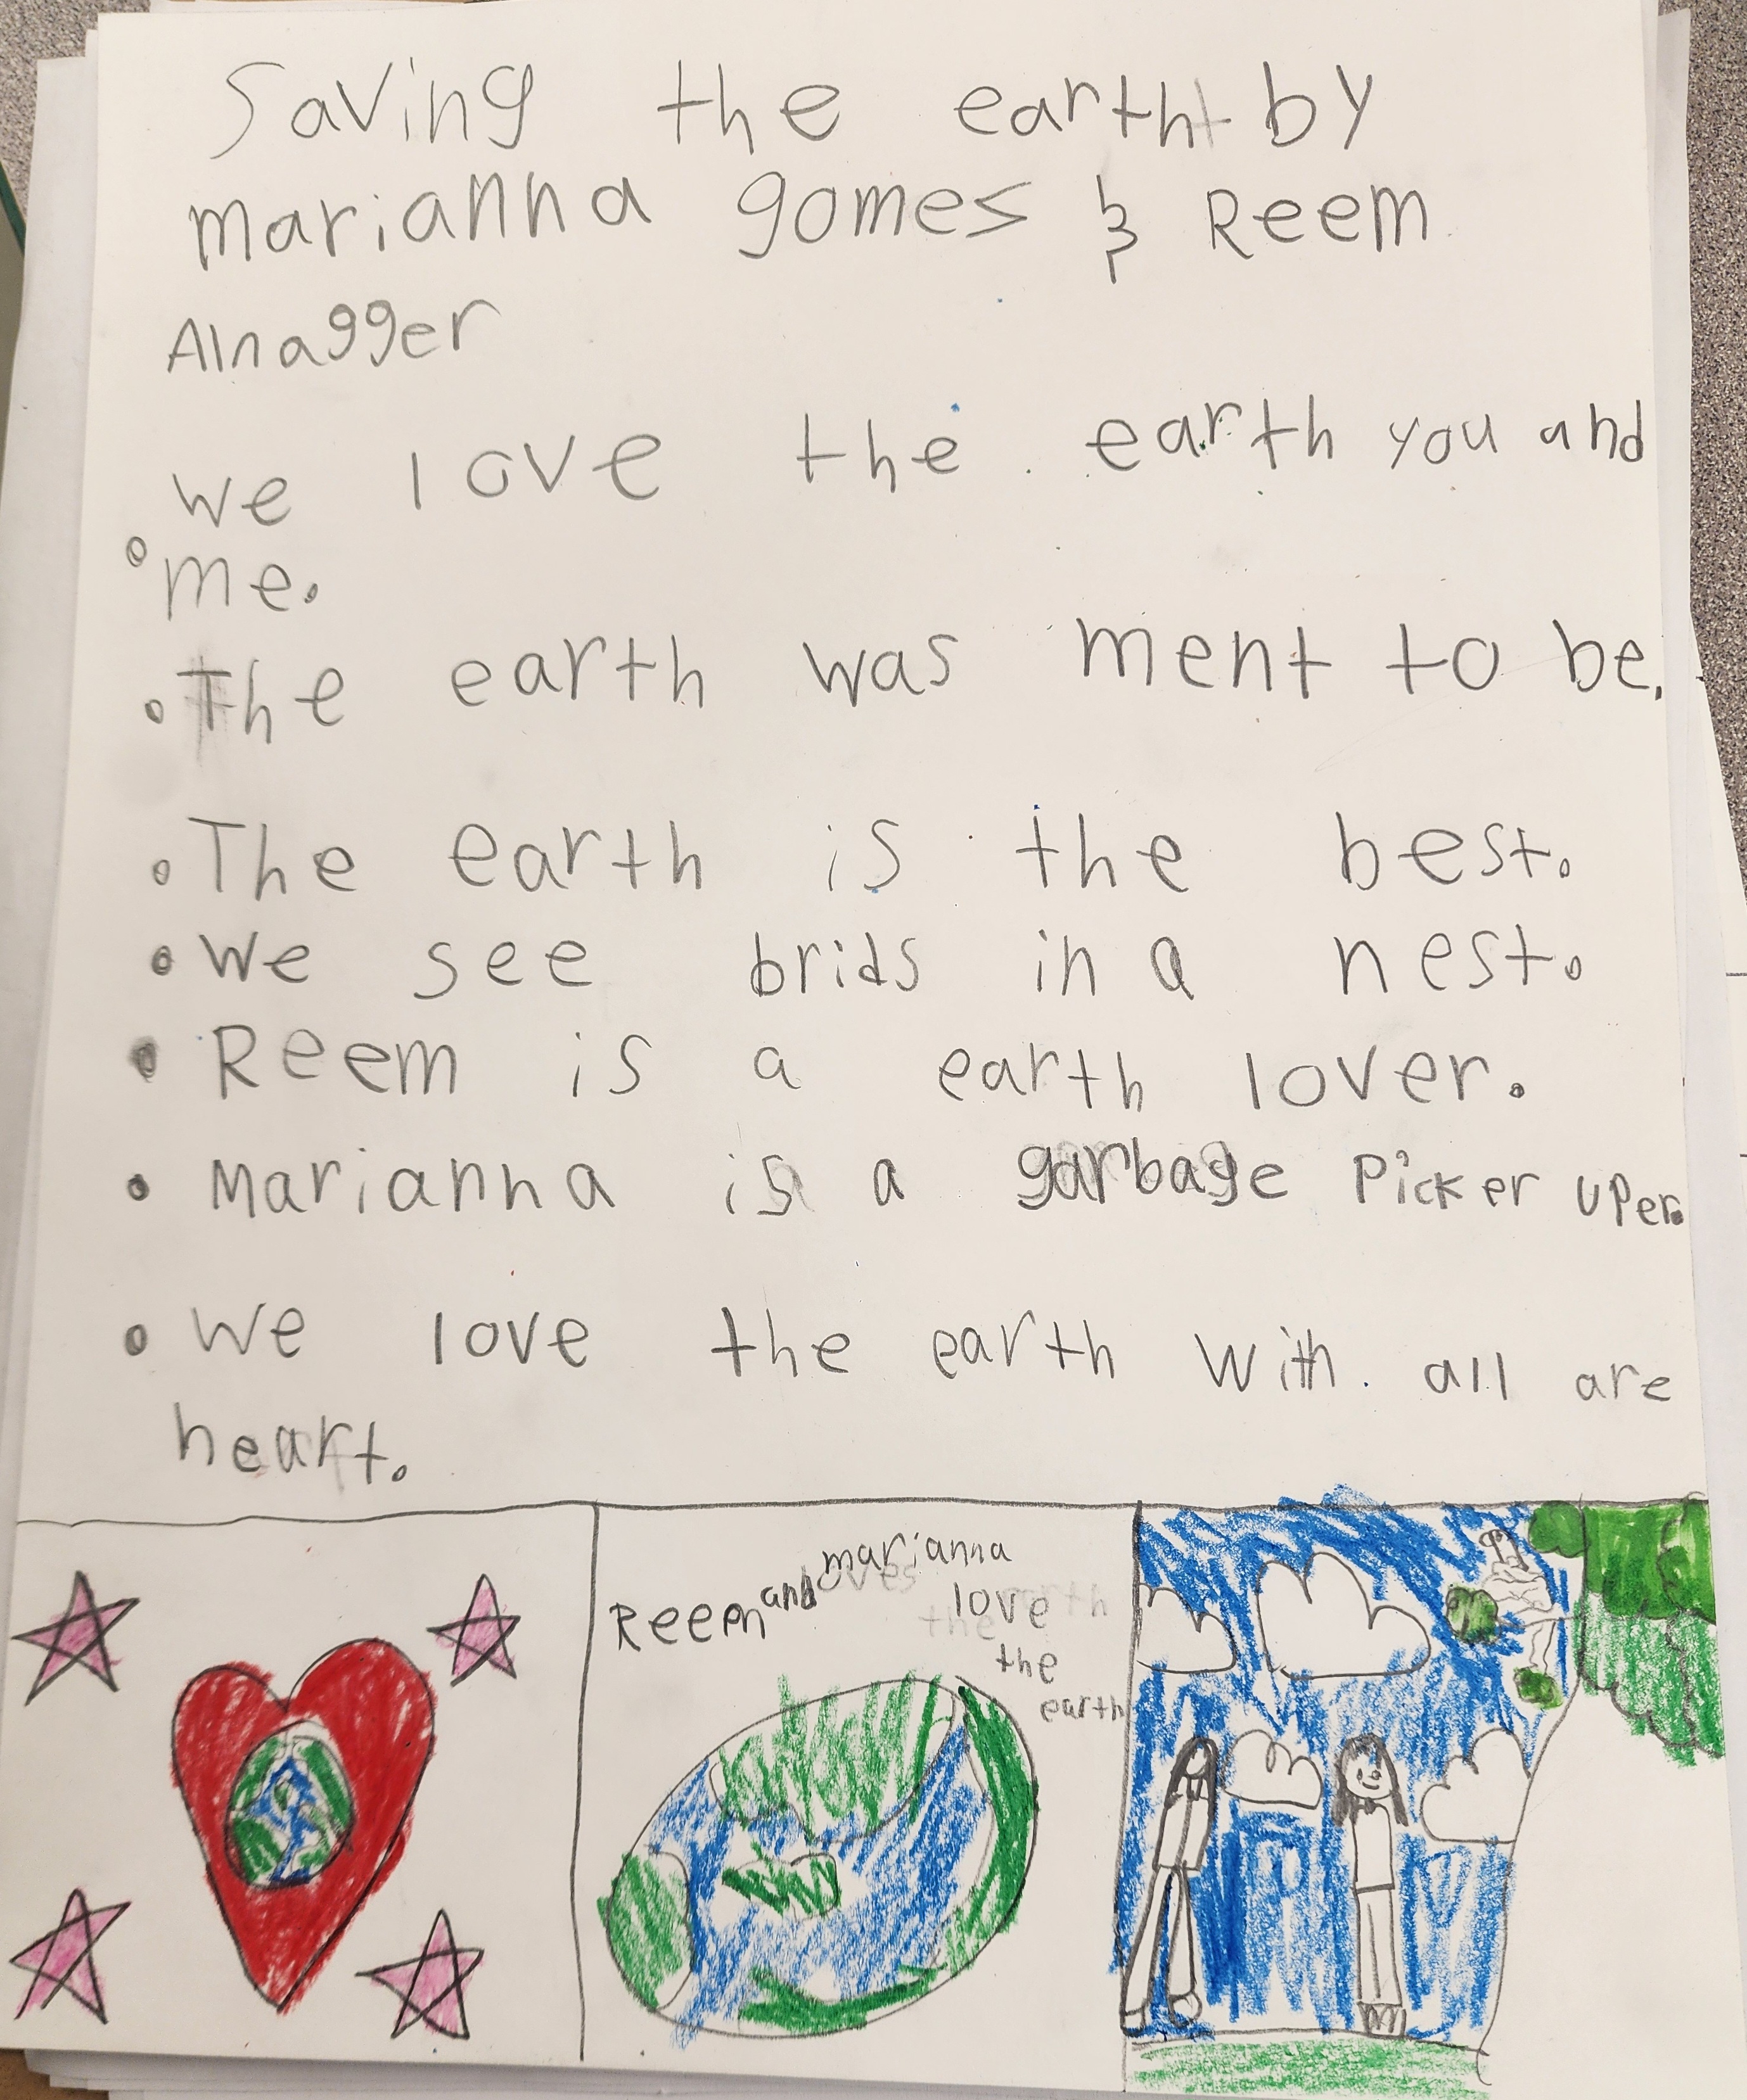 Saving the eartht by
marianna gomes & Reem
Alnagger
we love the earth you and
° me.
• The earth was ment to be.
• The earth is the best.
• We see brids in a nest.
• Reem is a earth lover.
• Marianna is a garbage Picker uper.
• We love the earth with all are
heart.
Reem and marianna
love
the
earth